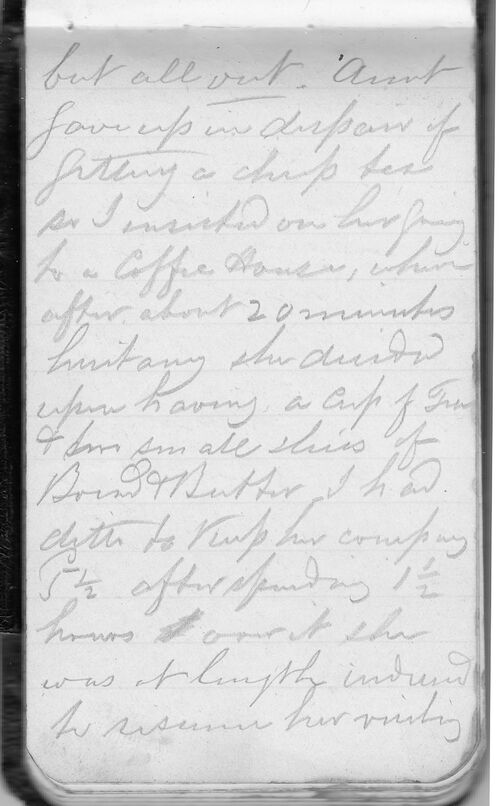 but all out. Aunt
gave up in despair of
getting a cheap tea
so I insisted on her going
to a Coffee House, where
after about 20 minutes
hesitancy she decided
upon having a Cup of Tea
& two small slices of
Bread & Butter I had
ditto to keep her company
5½ after spending 1½
hours over it she
was at length induced
to resume her visiting